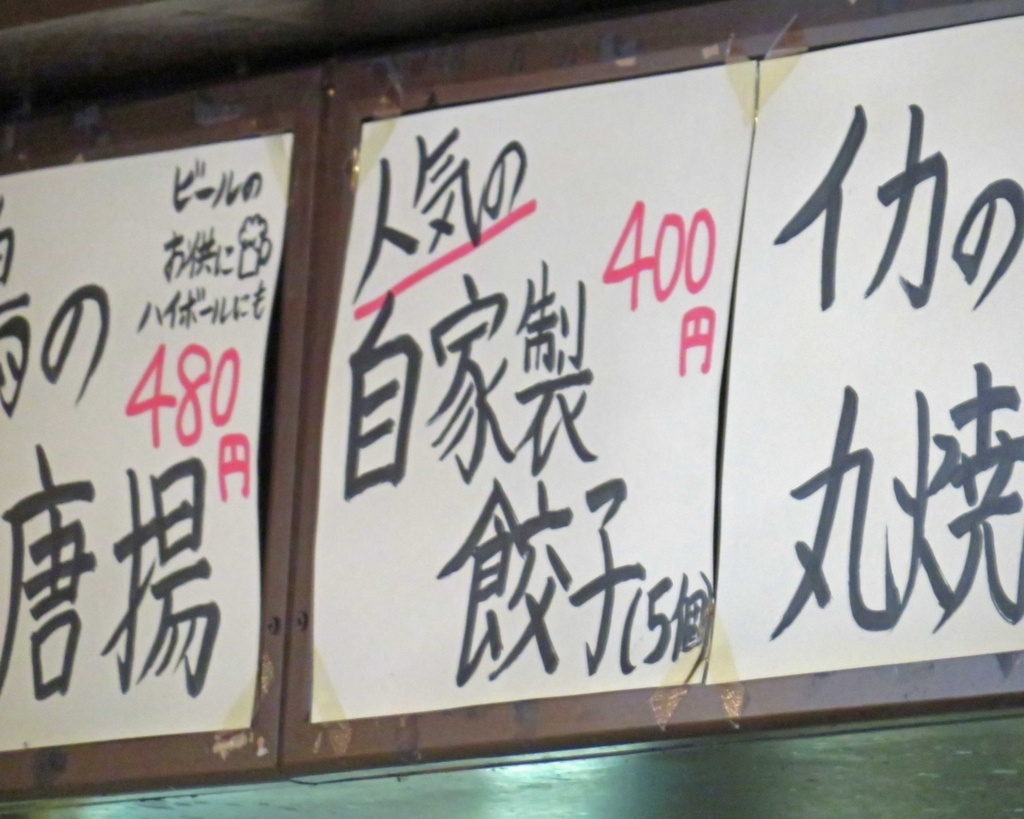 ビールの
お供に
ハイボールにも
480
円
の
唐揚
人気の
自家製
餃子(5個)
400
円
イカの
丸焼